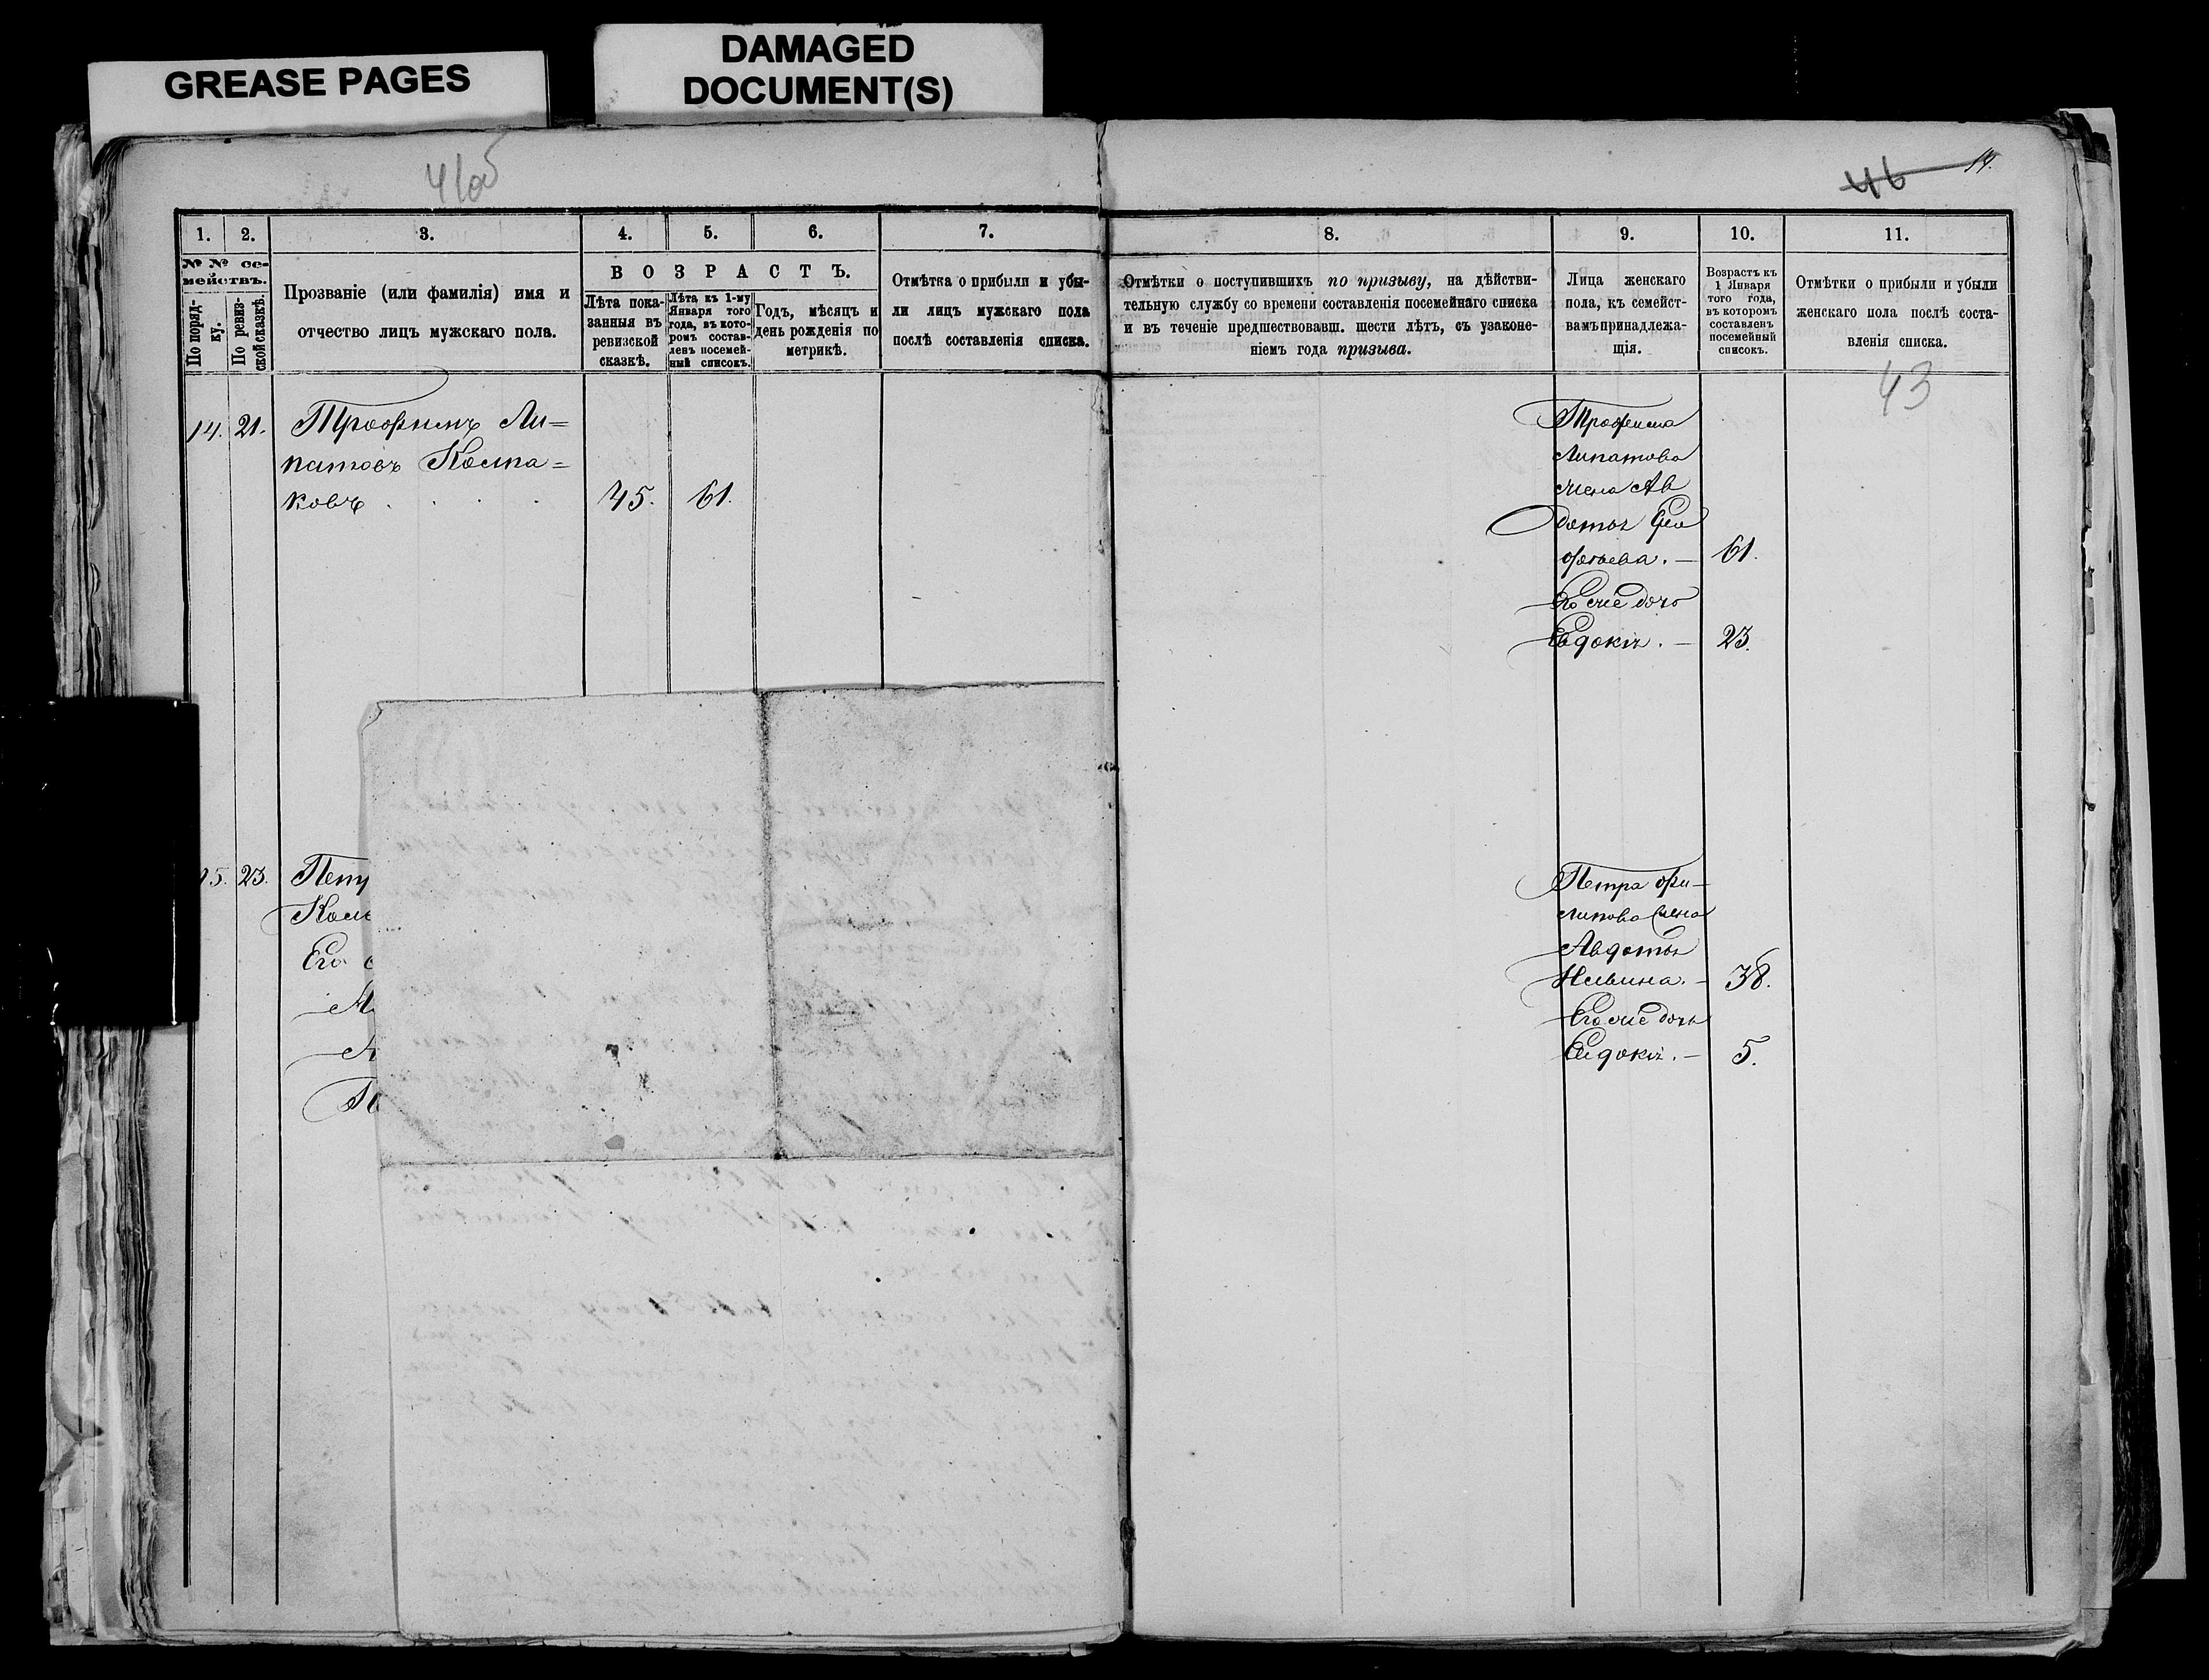 GREASE PAGES
DAMAGED
DOCUMENT(S)
41об
46
14.
1.
2.
3.
4.
5.
6.
7.
8.
9.
10.
11.
№ № се-
мействъ.
По поряд-
ку.
По ревиз-
ской сказкѣ.
Прозваніе (или фамилія) имя и
отчество лицъ мужскаго пола.
ВОЗРАСТЪ.
Лѣта пока-
занныя въ
ревизской
сказкѣ.
Лѣта къ 1-му
Января того
года, въ кото-
ромъ состав-
ленъ посемей-
ный списокъ.
Годъ, мѣсяцъ и
день рожденія по
метрикѣ.
Отмѣтка о прибыли и убы-
ли лицъ мужскаго пола
послѣ составленія списка.
Отмѣтки о поступившихъ по призыву, на дѣйстви-
тельную службу со времени составленія посемейнаго списка
и въ теченіе предшествовавш. шести лѣтъ, съ узаконе-
ніемъ года призыва.
Лица женскаго
пола, къ семейст-
вамъ принадлежа-
щія.
Возрастъ къ
1 Января
того года,
въ которомъ
составленъ
посемейный
списокъ.
Отмѣтки о прибыли и убыли
женскаго пола послѣ соста-
вленія списка.
43
14. 21. Трофимъ Ли=
патовъ Колпа=
ковъ . . . . 45. 61.
Трофима
Липатова
жена Ав
дотья
61.
дочь
Евдокія. — 23.
15. 23. Петр
Его с
Петра Фи—
липова жена
Авдотья
Ильина. — 38.
Его же дочь
Евдокія. — 5.